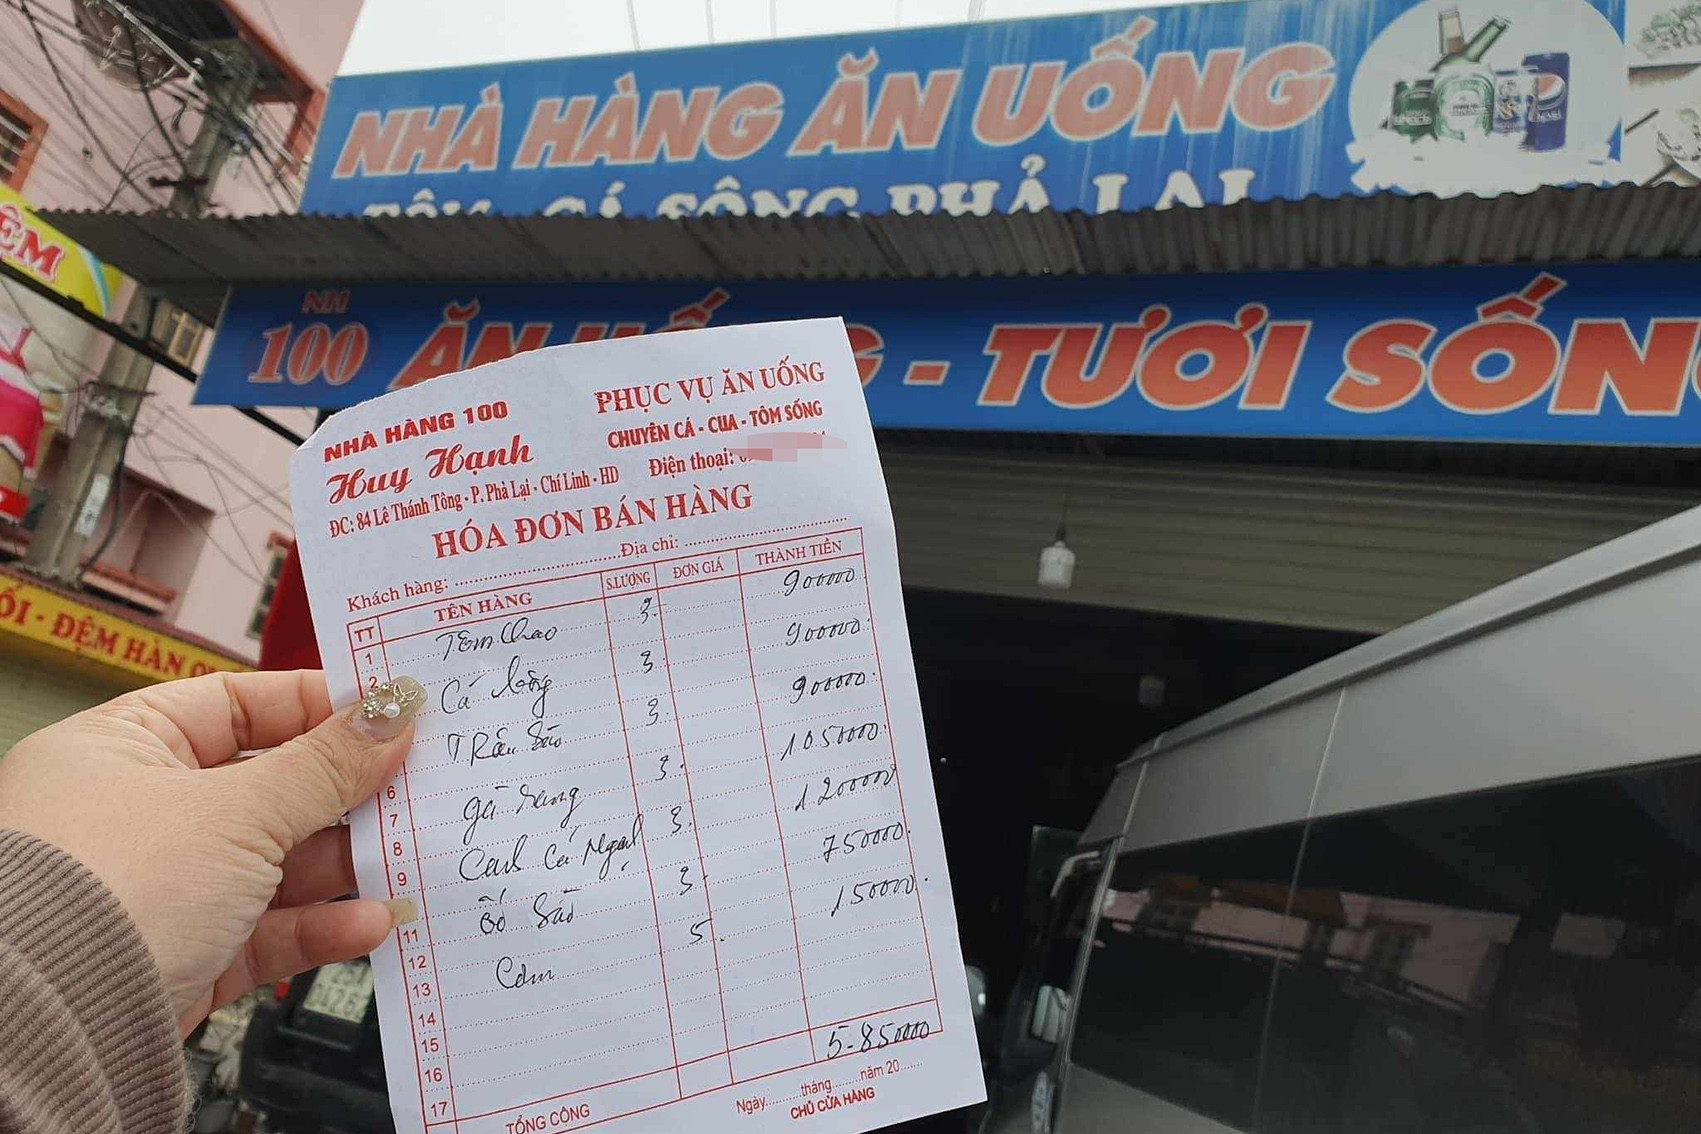 NHÀ HÀNG ĂN UỐNG
CÁ SÔNG PHẢ LẠI
ỆM
NH
100 ĂN UỐNG - TƯƠI SỐNG
ỐI - ĐỆM HÀN
NHÀ HÀNG 100
Huy Hạnh
PHỤC VỤ ĂN UỐNG
CHUYÊN CÁ - CUA - TÔM SỐNG
ĐC: 84 Lê Thánh Tông - P. Phả Lại - Chí Linh - HD
Điện thoại:
HÓA ĐƠN BÁN HÀNG
Khách hàng: ........ Địa chỉ: ........
TT TÊN HÀNG S.LƯỢNG ĐƠN GIÁ THÀNH TIỀN
1 Tôm Chao 3 900000
2 Cá 3 900000
Trâu Sào 3 900000
6
7 gà rang 3 1050000
8
9 Canh cá Ngạnh 3 1200000
Bò Sào 3 750000
11
12
13 Cơm 5 150000
14
15
16
5-850000
17
TỔNG CỘNG
Ngày........tháng........năm 20......
CHỦ CỬA HÀNG